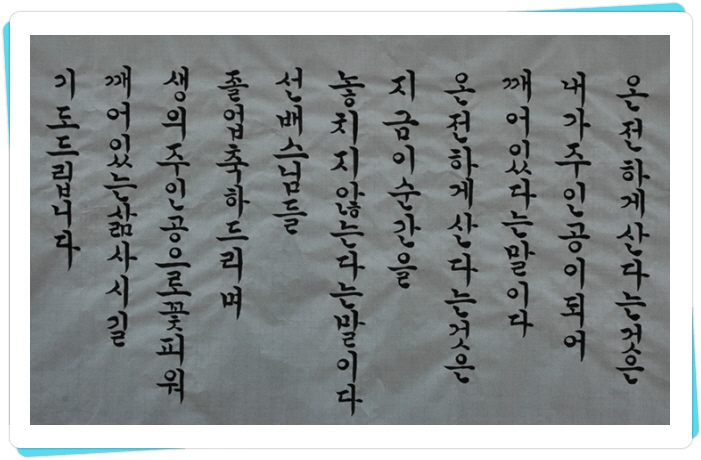 온전하게산다는것은
내가주인공이되어
깨어있다는말이다
온전하게산다는것은
지금이순간을
놓치지않는다는말이다
선배스님들
졸업축하드리며
생의주인공으로꽃피워
깨어있는삶사시길
기도드립니다